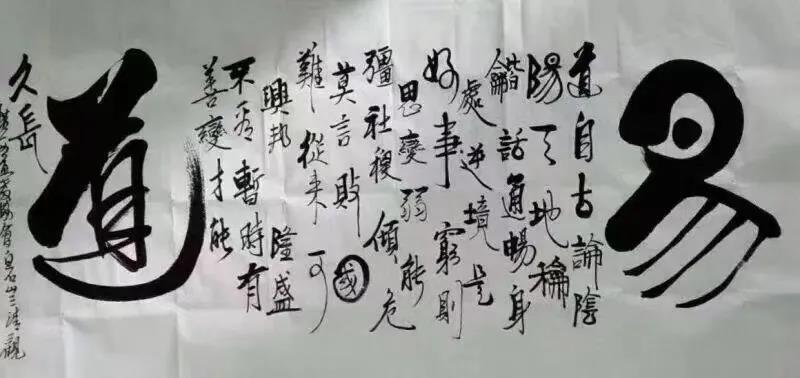 易
道自古論陰
陽天地
話通暢身
處逆境是
好事窮則
思變弱能
彊社稷傾危
莫言敗國
難從來可
興邦隆盛
不暫時有
善變才能
久長
道
清觀